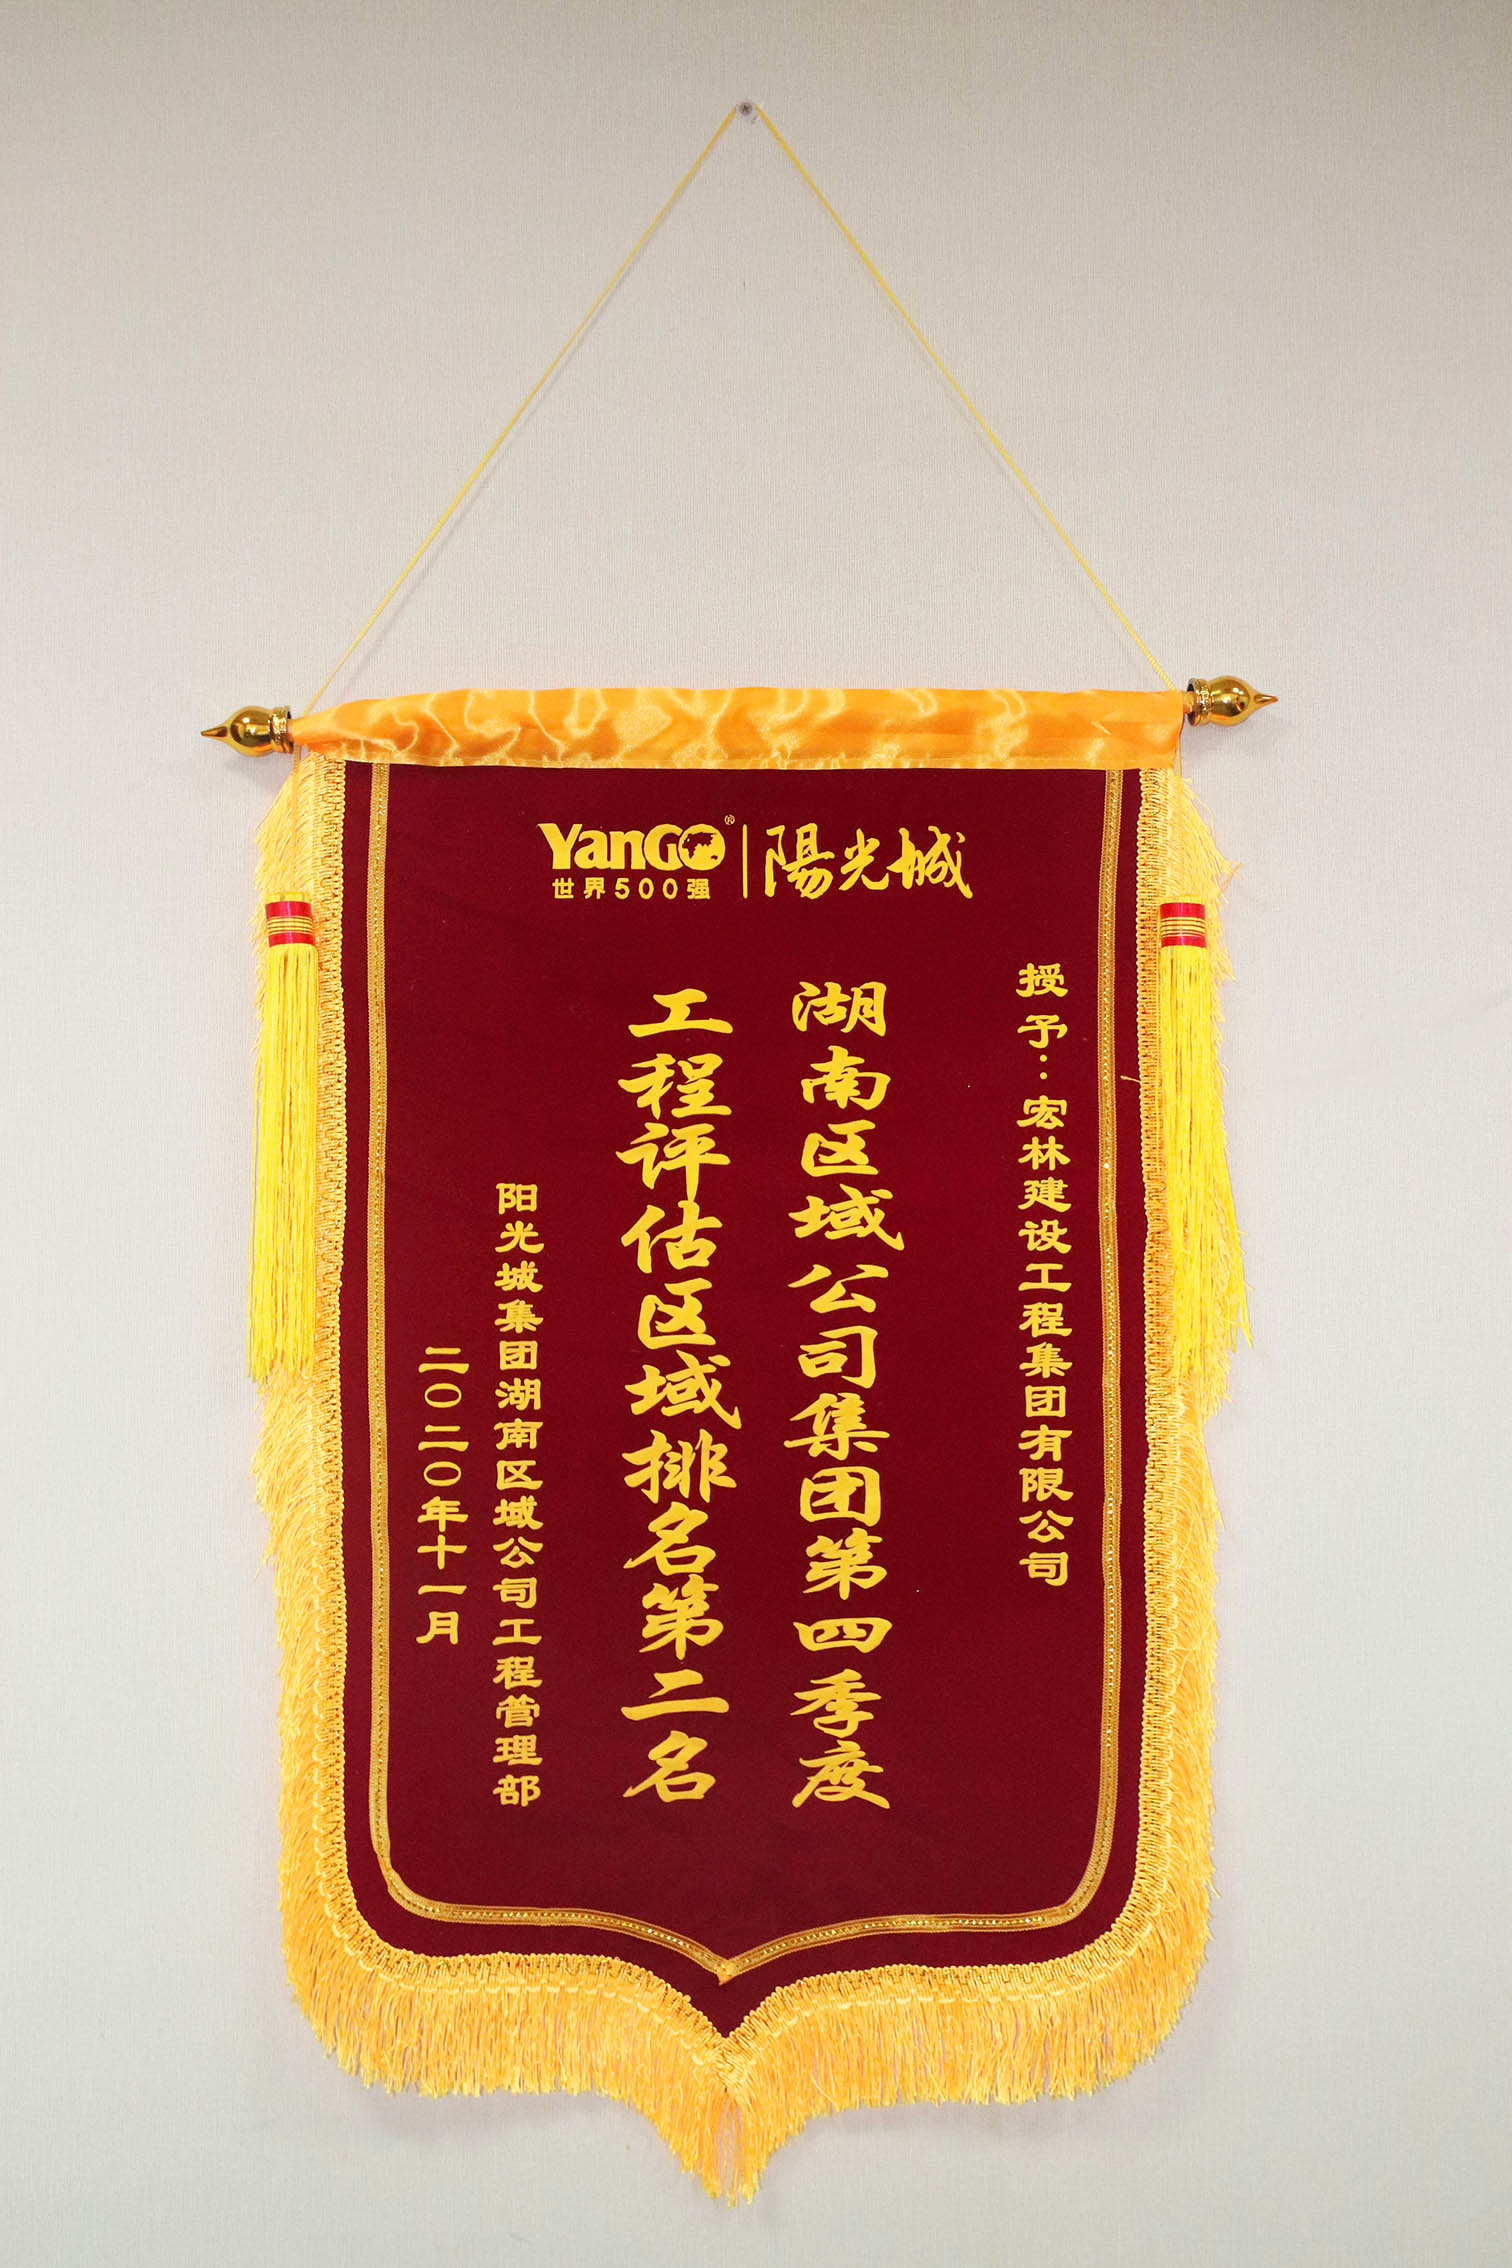 YanGO® | 陽光城
世界500强
授予：宏林建设工程集团有限公司
湖南区域公司集团第四季度
工程评估区域排名第二名
阳光城集团湖南区域公司工程管理部
二〇二〇年十一月